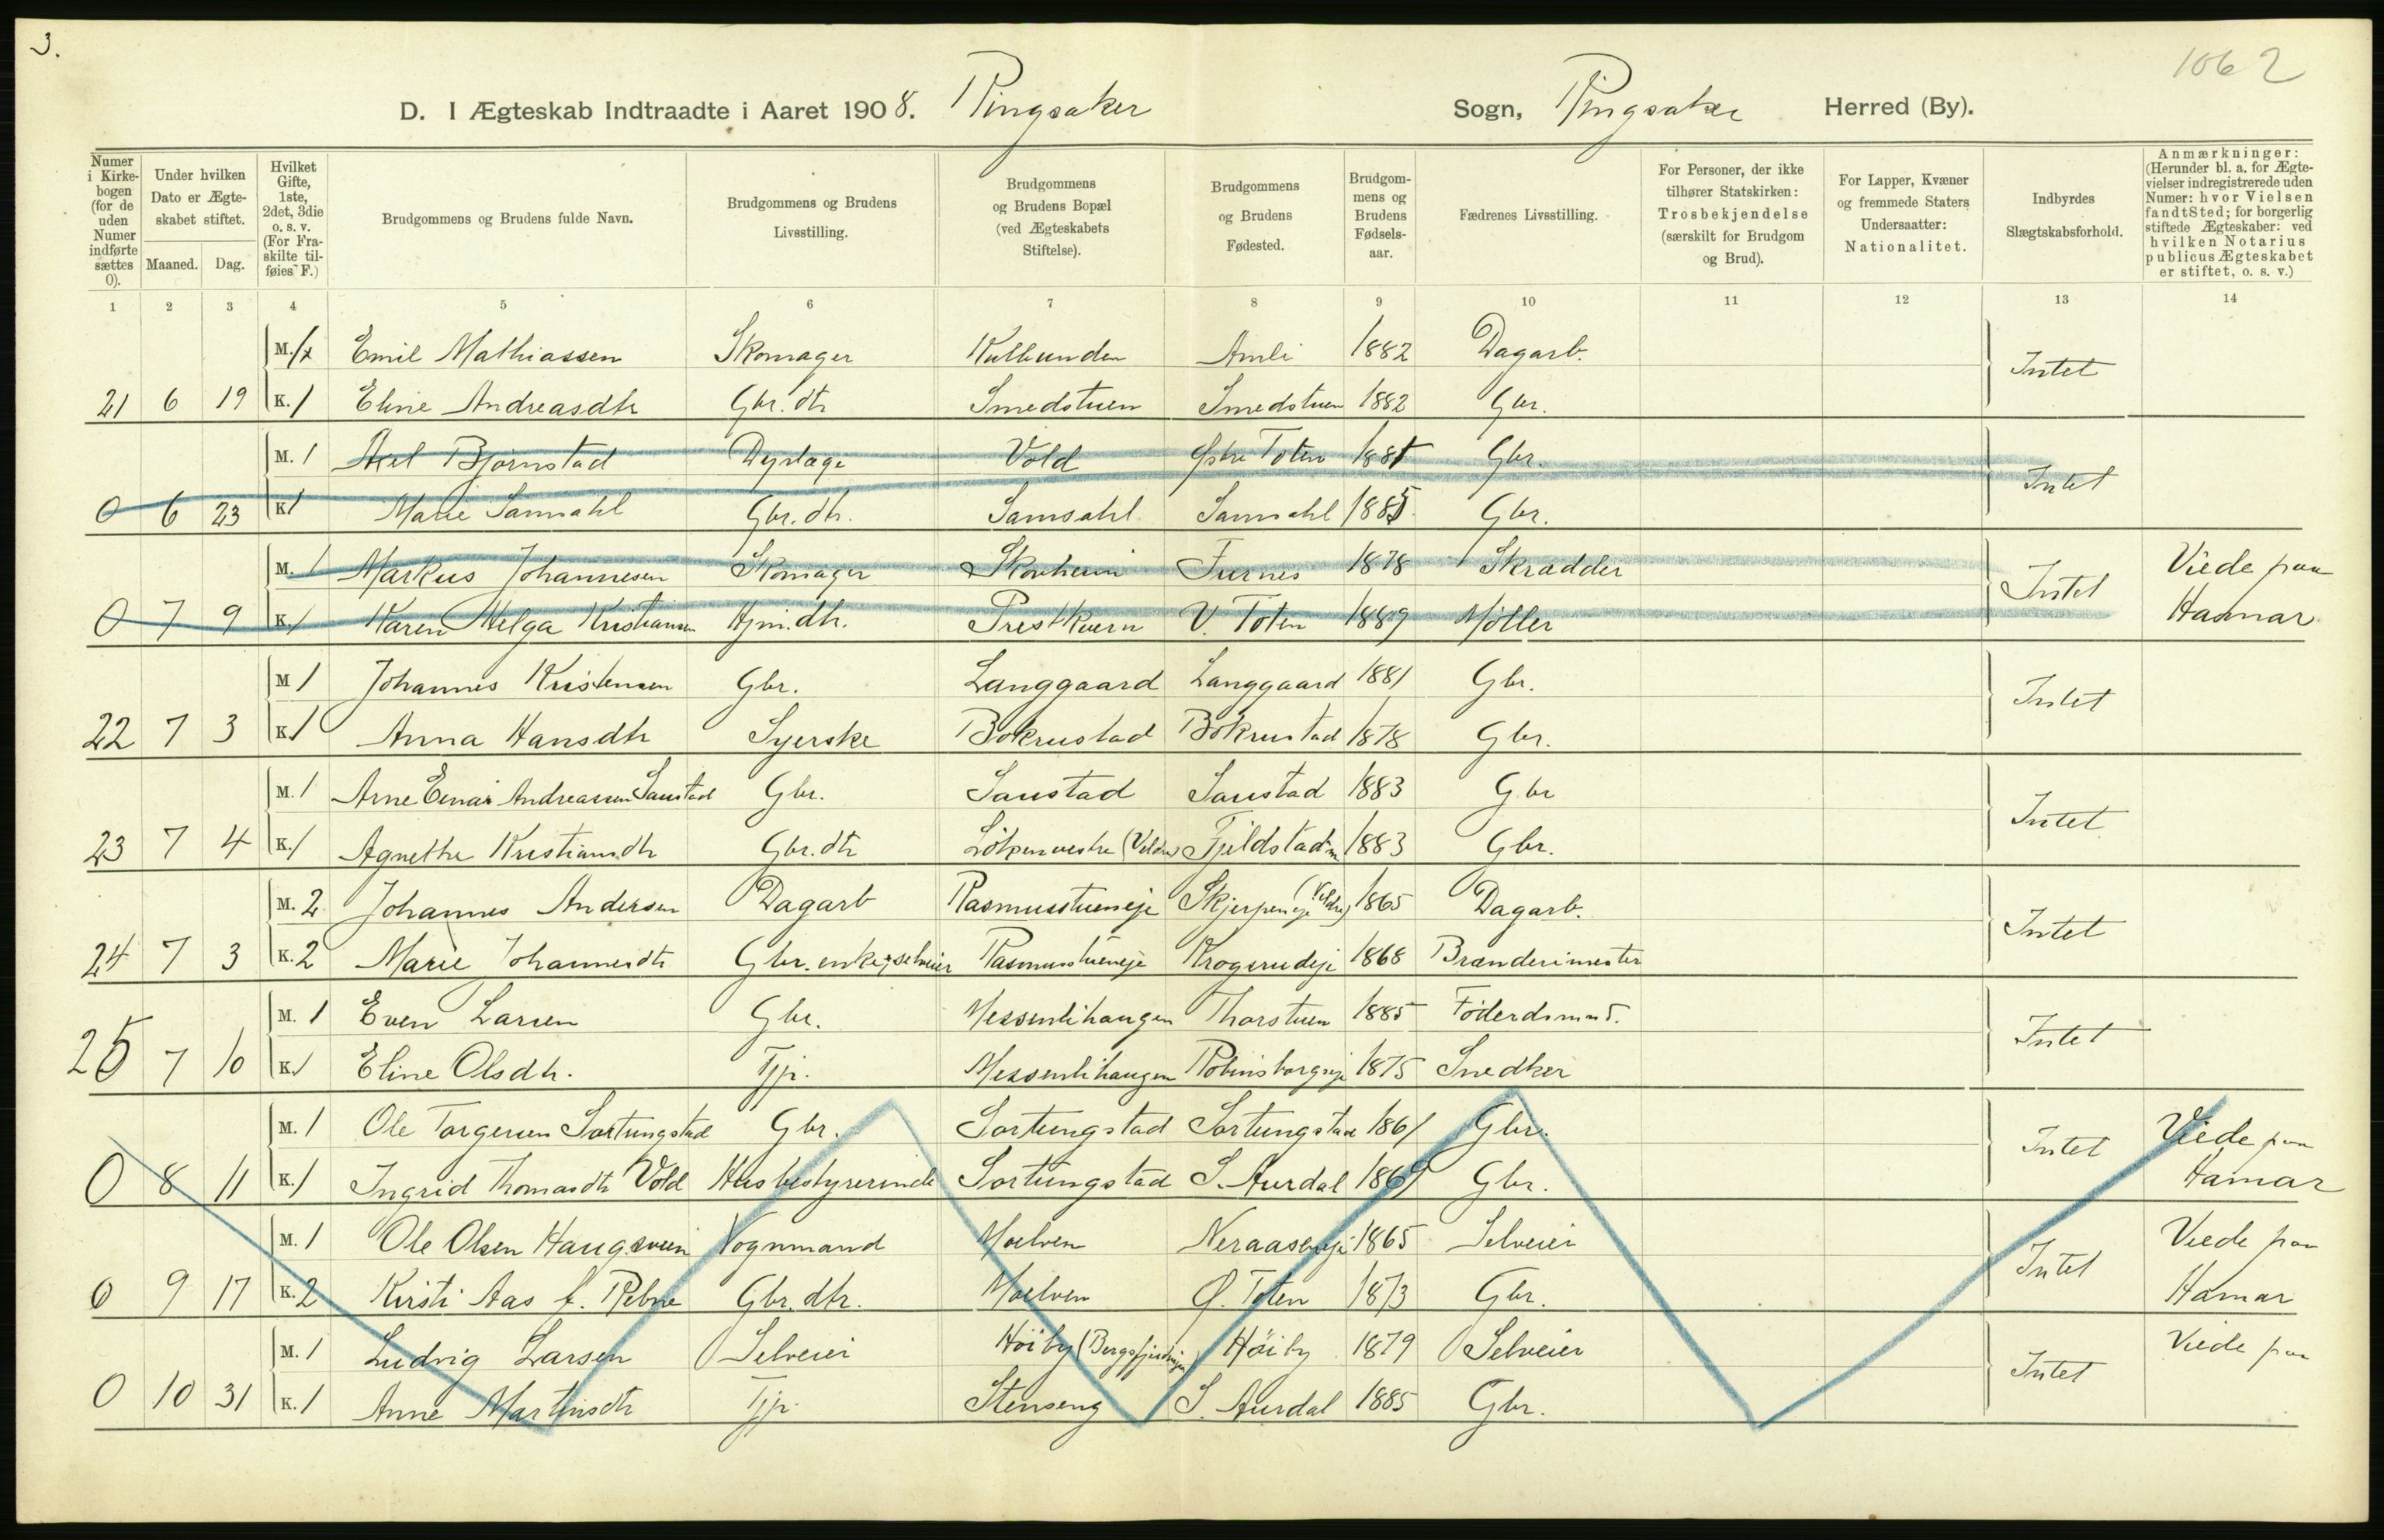 3.
1062
D. I Ægteskab Indtraadte i Aaret 1908. Ringsaker Sogn, Ringsaker Herred (By).
Numer i Kirkebogen (for de uden Numer indførte sættes 0). Under hvilken Dato er Ægteskabet stiftet. Maaned. Dag. Hvilket Gifte, 1ste, 2det, 3die o. s. v. (For Fraskilte tilføies F.) Brudgommens og Brudens fulde Navn. Brudgommens og Brudens Livsstilling. Brudgommens og Brudens Bopæl (ved Ægteskabets Stiftelse). Brudgommens og Brudens Fødested. Brudgommens og Brudens Fødselsaar. Fædrenes Livsstilling. For Personer, der ikke tilhører Statskirken: Trosbekjendelse (særskilt for Brudgom og Brud). For Lapper, Kvæner og fremmede Staters Undersaatter: Nationalitet. Indbyrdes Slægtskabsforhold. Anmærkninger: (Herunder bl. a. for Ægtevielser indregistrerede uden Numer: hvor Vielsen fandt Sted; for borgerlig stiftede Ægteskaber: ved hvilken Notarius publicus Ægteskabet er stiftet, o. s. v.)
1 2 3 4 5 6 7 8 9 10 11 12 13 14
M. 1 Emil Mathiassen Skomager Amli 1882 Dagarb. Intet
21 6 19 K. 1 Eline Andreasdtr Gbr. dtr Smedstuen Smedstuen 1882 Gbr.
M. 1 Axel Bjørnstad Dyrlæge Vold Østre Toten 1881 Gbr. Intet
0 6 23 K. 1 Marie Samsahl Gbr. dtr. Samsahl Samsahl 1885 Gbr.
M. 1 Markus Johannesen Skomager Skovheim Furnes 1878 Skrædder Intet Viede paa
0 7 9 K. 1 Karen Helga Kristiansen Hjm. dtr. Prestkvern V. Toten 1889 Møller Hamar
M 1 Johannes Kristensen Gbr. Langgaard Langgaard 1881 Gbr. Intet
22 7 3 K. 1 Anna Hansdtr Syerske Bokrustad Bokrustad 1878 Gbr.
M. 1 Arne Einar Andreassen Saustad Gbr. Saustad Saustad 1883 Gbr Intet
23 7 4 K. 1 Agnethe Kristiansdtr Gbr. dtr (Veldre) Fjeldstad 1883 Gbr.
M. 2 Johannes Andersen Dagarb Rasmusstueneje Skjerpeneje (Veldre) 1865 Dagarb. Intet
24 7 3 K. 2 Marie Johannesdtr Gbr. enke, selveier Rasmusstueneje Krogsrudeje 1868 Brænderimester
M. 1 Even Larsen Gbr. Messenlihaugen Thorstuen 1885 Føderdsmand. Intet
25 7 10 K. 1 Eline Olsdtr. Tjp. Messenlihaugen Robinsborgeje 1875 Snedker
M. 1 Ole Torgersen Sortungstad Gbr. Sortungstad Sortungstad 1861 Gbr. Intet Viede paa
0 8 11 K. 1 Ingrid Thomasdtr Vold Husbestyrerinde Sortungstad S. Aurdal 1869 Gbr. Hamar
M. 1 Ole Olsen Haugsveen Vognmand Moelven Neraaseneje 1865 Selveier Intet Viede paa
0 9 17 K. 2 Kirsti Aas f. Rebne Gbr. dtr. Moelven Ø. Toten 1873 Gbr. Hamar
M. 1 Ludvig Larsen Selveier Höiby Höiby 1879 Selveier Intet Viede paa
0 10 31 K. 1 Anne Martinsdtr Tjp. Stenseng S. Aurdal 1885 Gbr.